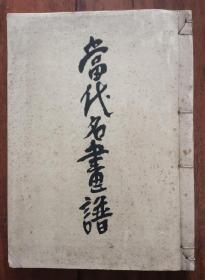 當代名畫譜